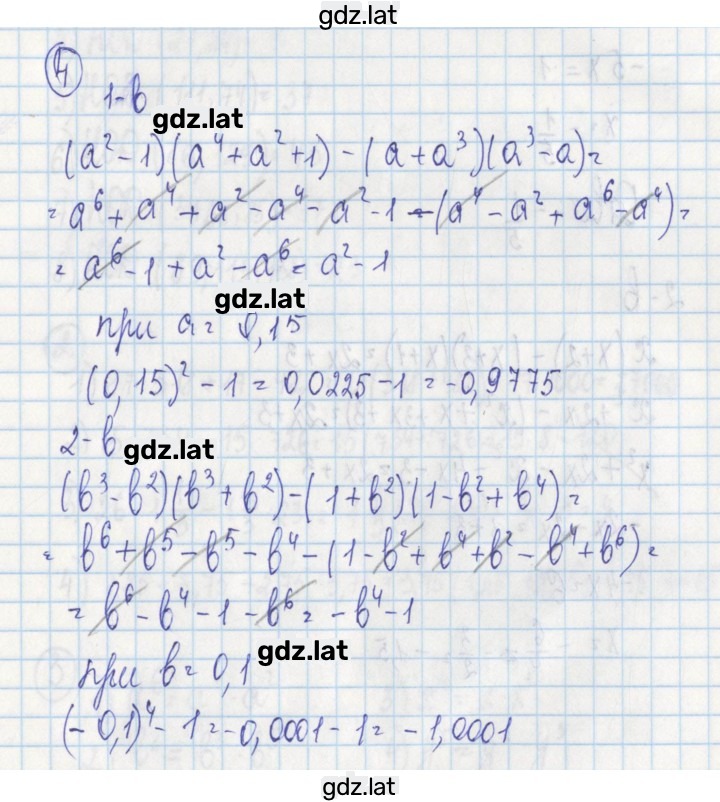 gdz.lat
4
1-в
gdz.lat
(a² - 1)(a⁴ + a² + 1) - (a + a³)(a³ - a) =
= a⁶ + a⁴ + a² - a⁴ - a² - 1 - (a⁴ - a² + a⁶ - a⁴) =
= a⁶ - 1 + a² - a⁶ = a² - 1
gdz.lat
при a = 0,15
(0,15)² - 1 = 0,0225 - 1 = -0,9775
2-в
gdz.lat
(b³ - b²)(b³ + b²) - (1 + b²)(1 - b² + b⁴) =
= b⁶ + b⁵ - b⁵ - b⁴ - (1 - b² + b⁴ + b² - b⁴ + b⁶) =
= b⁶ - b⁴ - 1 - b⁶ = -b⁴ - 1
gdz.lat
при b = 0,1
(- 0,1)⁴ - 1 = -0,0001 - 1 = -1,0001
gdz.lat